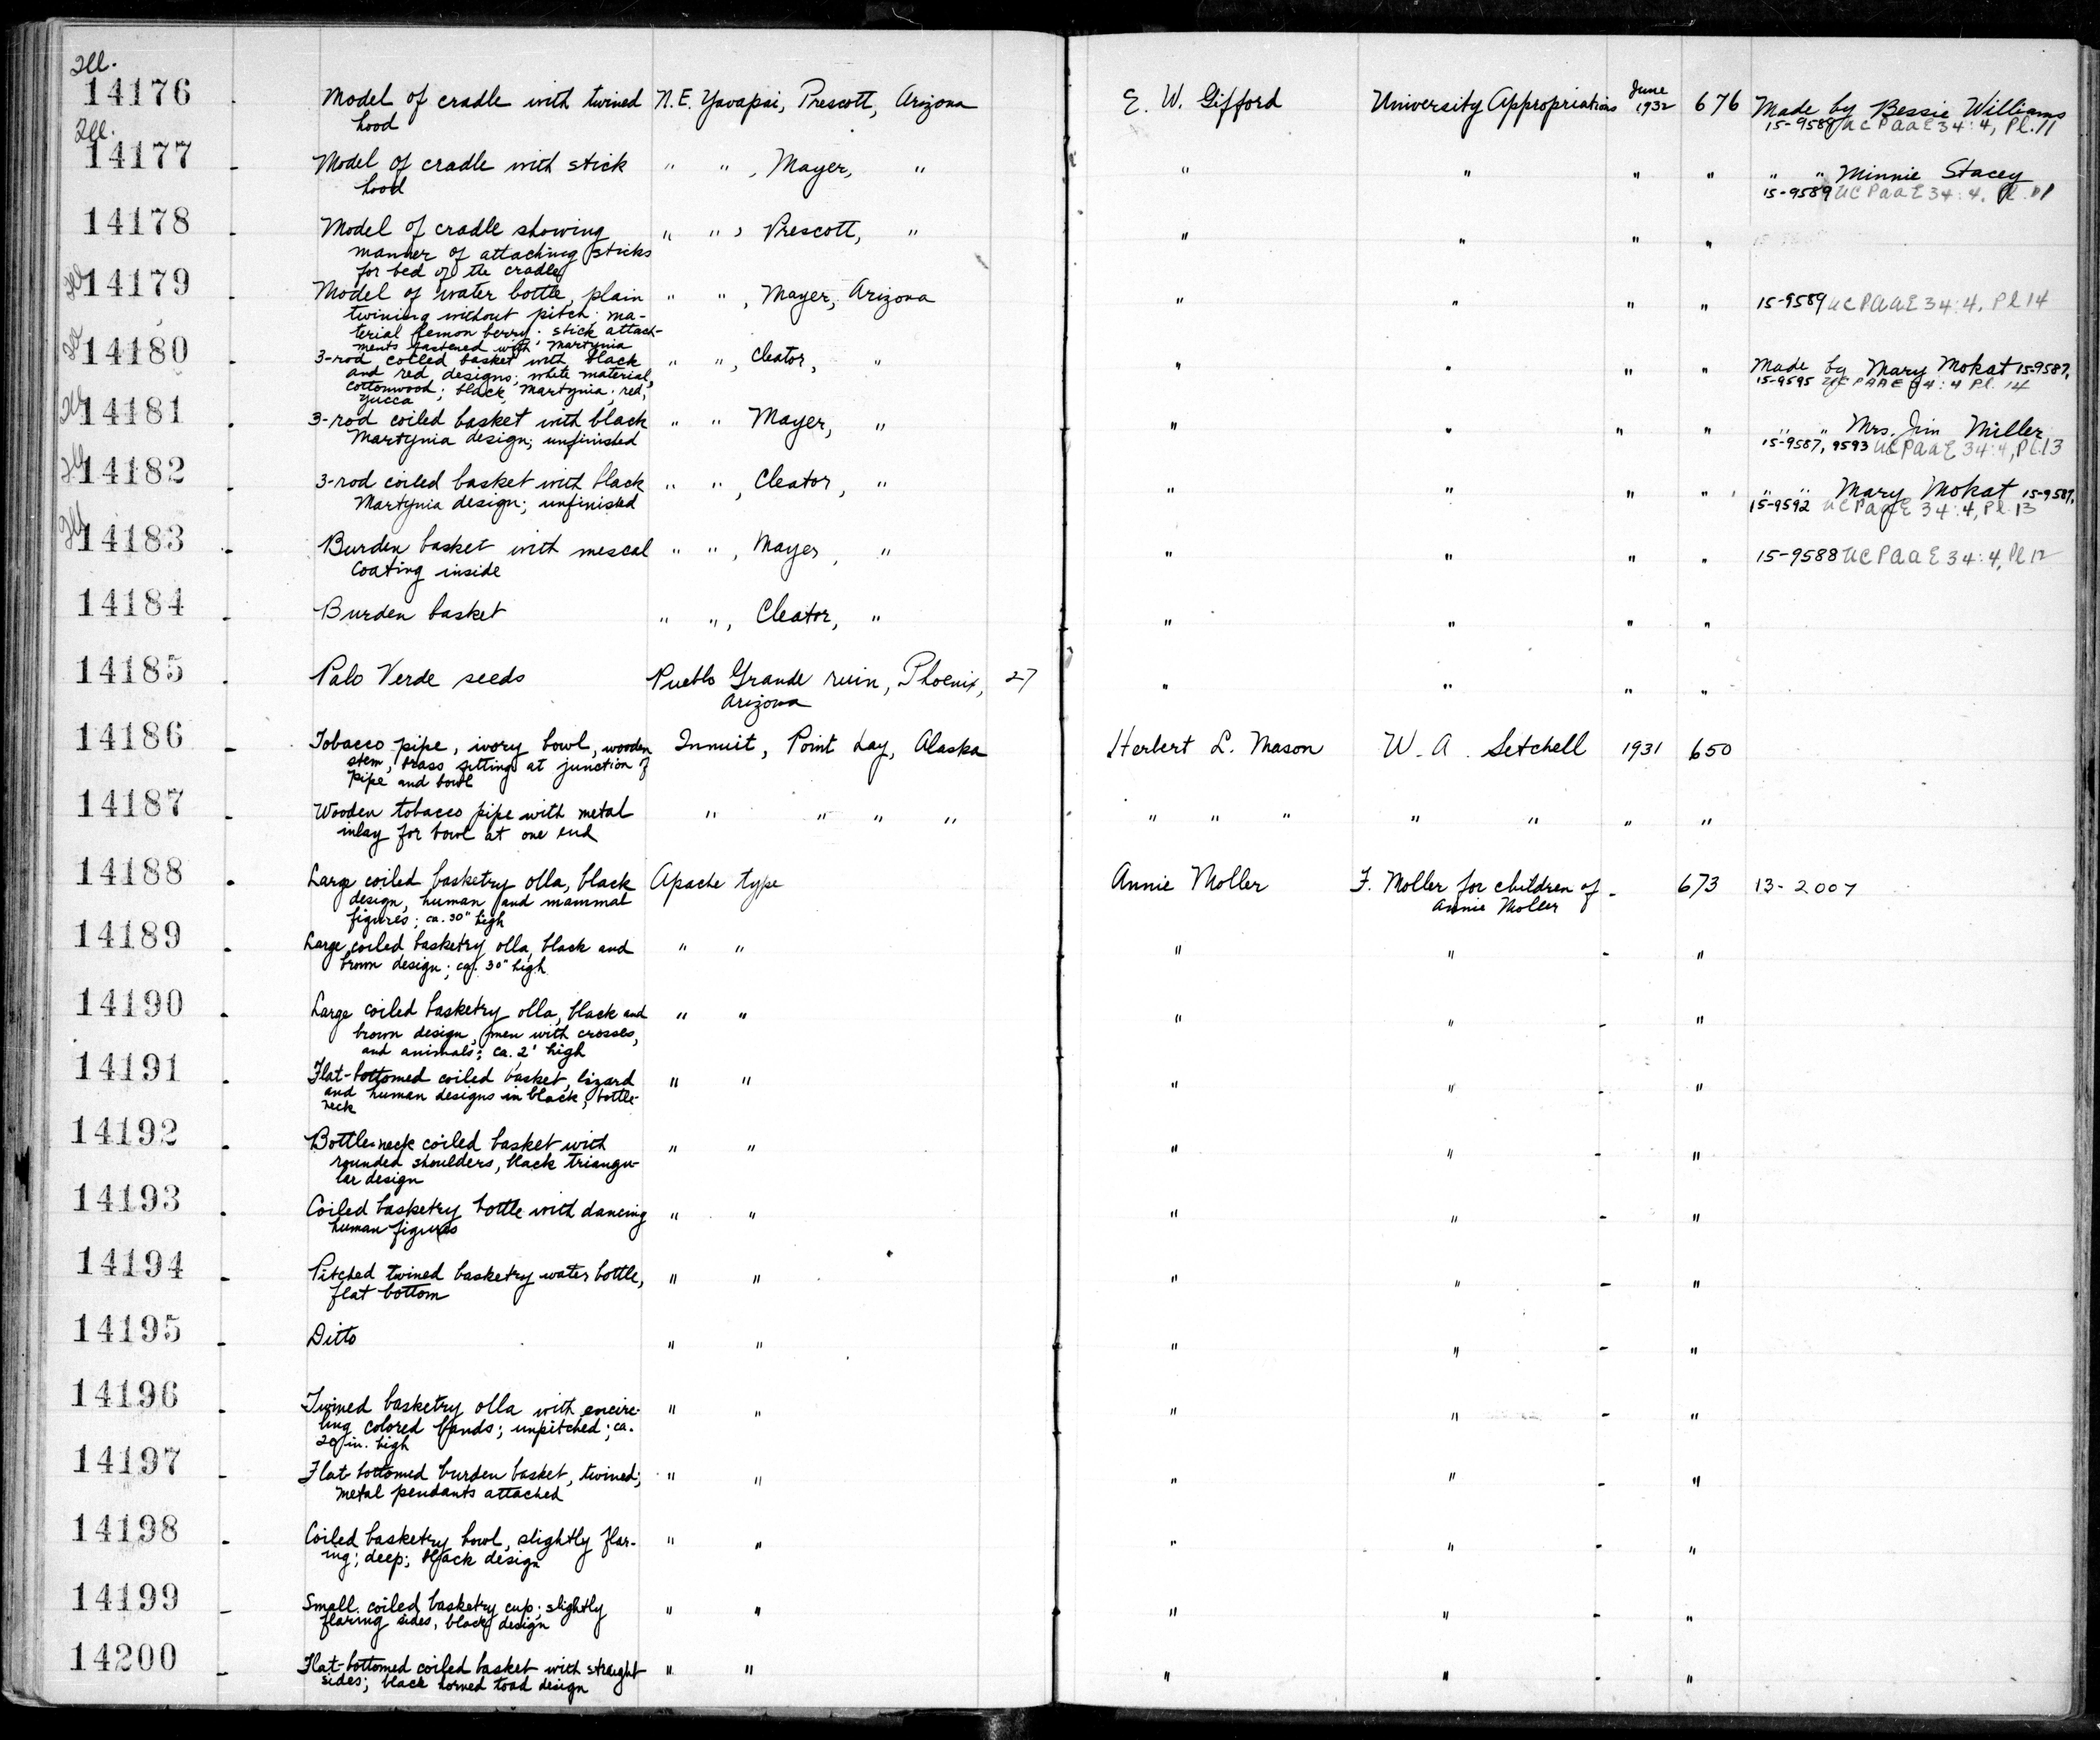 Ill.
14176 . Model of cradle with twined N.E. Yavapai, Prescott, Arizona E. W. Gifford University Appropriations June 1932 676 Made by Bessie Williams
hood 15-9589 UCPAAE 34:4, Pl. 11
Ill.
14177 - Model of cradle with stick " " , Mayer, " " " " " " " Minnie Stacey
hood 15-9589 UCPAAE 34:4. Pl. 11
14178 - Model of cradle showing " " , Prescott, " " " " "
manner of attaching sticks
for bed of the cradle
Ill
14179 . Model of water bottle, plain " " , Mayer, Arizona " " " " 15-9589 UCPAAE 34:4. Pl 14
twining without pitch; ma-
terial lemon berry; stick attach-
ments fastened with Martynia
Ill
14180 . 3-rod coiled basket with black " " , Cleator, " " " " " Made by Mary Mokat 15-9587,
and red designs; white material, 15-9595 UCPAAE 34:4 Pl. 14
cottonwood; black, Martynia; red,
yucca
Ill
14181 . 3-rod coiled basket with black " " Mayer, " " " " " " " Mrs. Jim Miller
Martynia design; unfinished 15-9587, 9593 UCPAAE 34:4, Pl. 13
Ill
14182 . 3-rod coiled basket with black " " , Cleator, " " " " " " " Mary Mokat 15-9587,
Martynia design; unfinished 15-9592 UCPAAE 34:4, Pl. 13
Ill
14183 - Burden basket with mescal " " , Mayer, " " " " " 15-9588 UCPAAE 34:4, Pl 12
coating inside
14184 - Burden basket " " , Cleator, " " " " "
14185 . Palo Verde seeds Pueblo Grande ruin, Phoenix, 27 " " " "
Arizona
14186 - Tobacco pipe, ivory bowl, wooden Innuit, Point Lay, Alaska Herbert L. Mason W. A. Setchell 1931 650
stem, brass fitting at junction of
pipe and bowl
14187 - Wooden tobacco pipe with metal " " " " " " " " " " "
inlay for bowl at one end
14188 . Large coiled basketry olla, black Apache type Annie Moller F. Moller for children of - 673 13-2007
design, human and mammal Annie Moller
figures; ca. 30" high
14189 . Large coiled basketry olla, black and " " " " - "
brown design; ca. 30" high
14190 . Large coiled basketry olla, black and " " " " - "
brown design, men with crosses,
and animals; ca. 2' high
14191 . Flat-bottomed coiled basket, lizard " " " " - "
and human designs in black, bottle-
neck
14192 - Bottle-neck coiled basket with " " " " - "
rounded shoulders, black triangu-
lar design
14193 . Coiled basketry bottle with dancing " " " " - "
human figures
14194 - Pitched twined basketry water bottle, " " " " - "
flat bottom
14195 - Ditto " " " " - "
14196 - Twined basketry olla with encirc- " " " " - "
ling colored bands; unpitched; ca.
20 in. high
14197 - Flat-bottomed burden basket, twined; " " " " - "
metal pendants attached
14198 - Coiled basketry bowl, slightly flar- " " " " - "
ing; deep; black design
14199 - Small coiled basketry cup; slightly " " " " - "
flaring sides, black design
14200 - Flat-bottomed coiled basket with straight " " " " - "
sides; black horned toad design